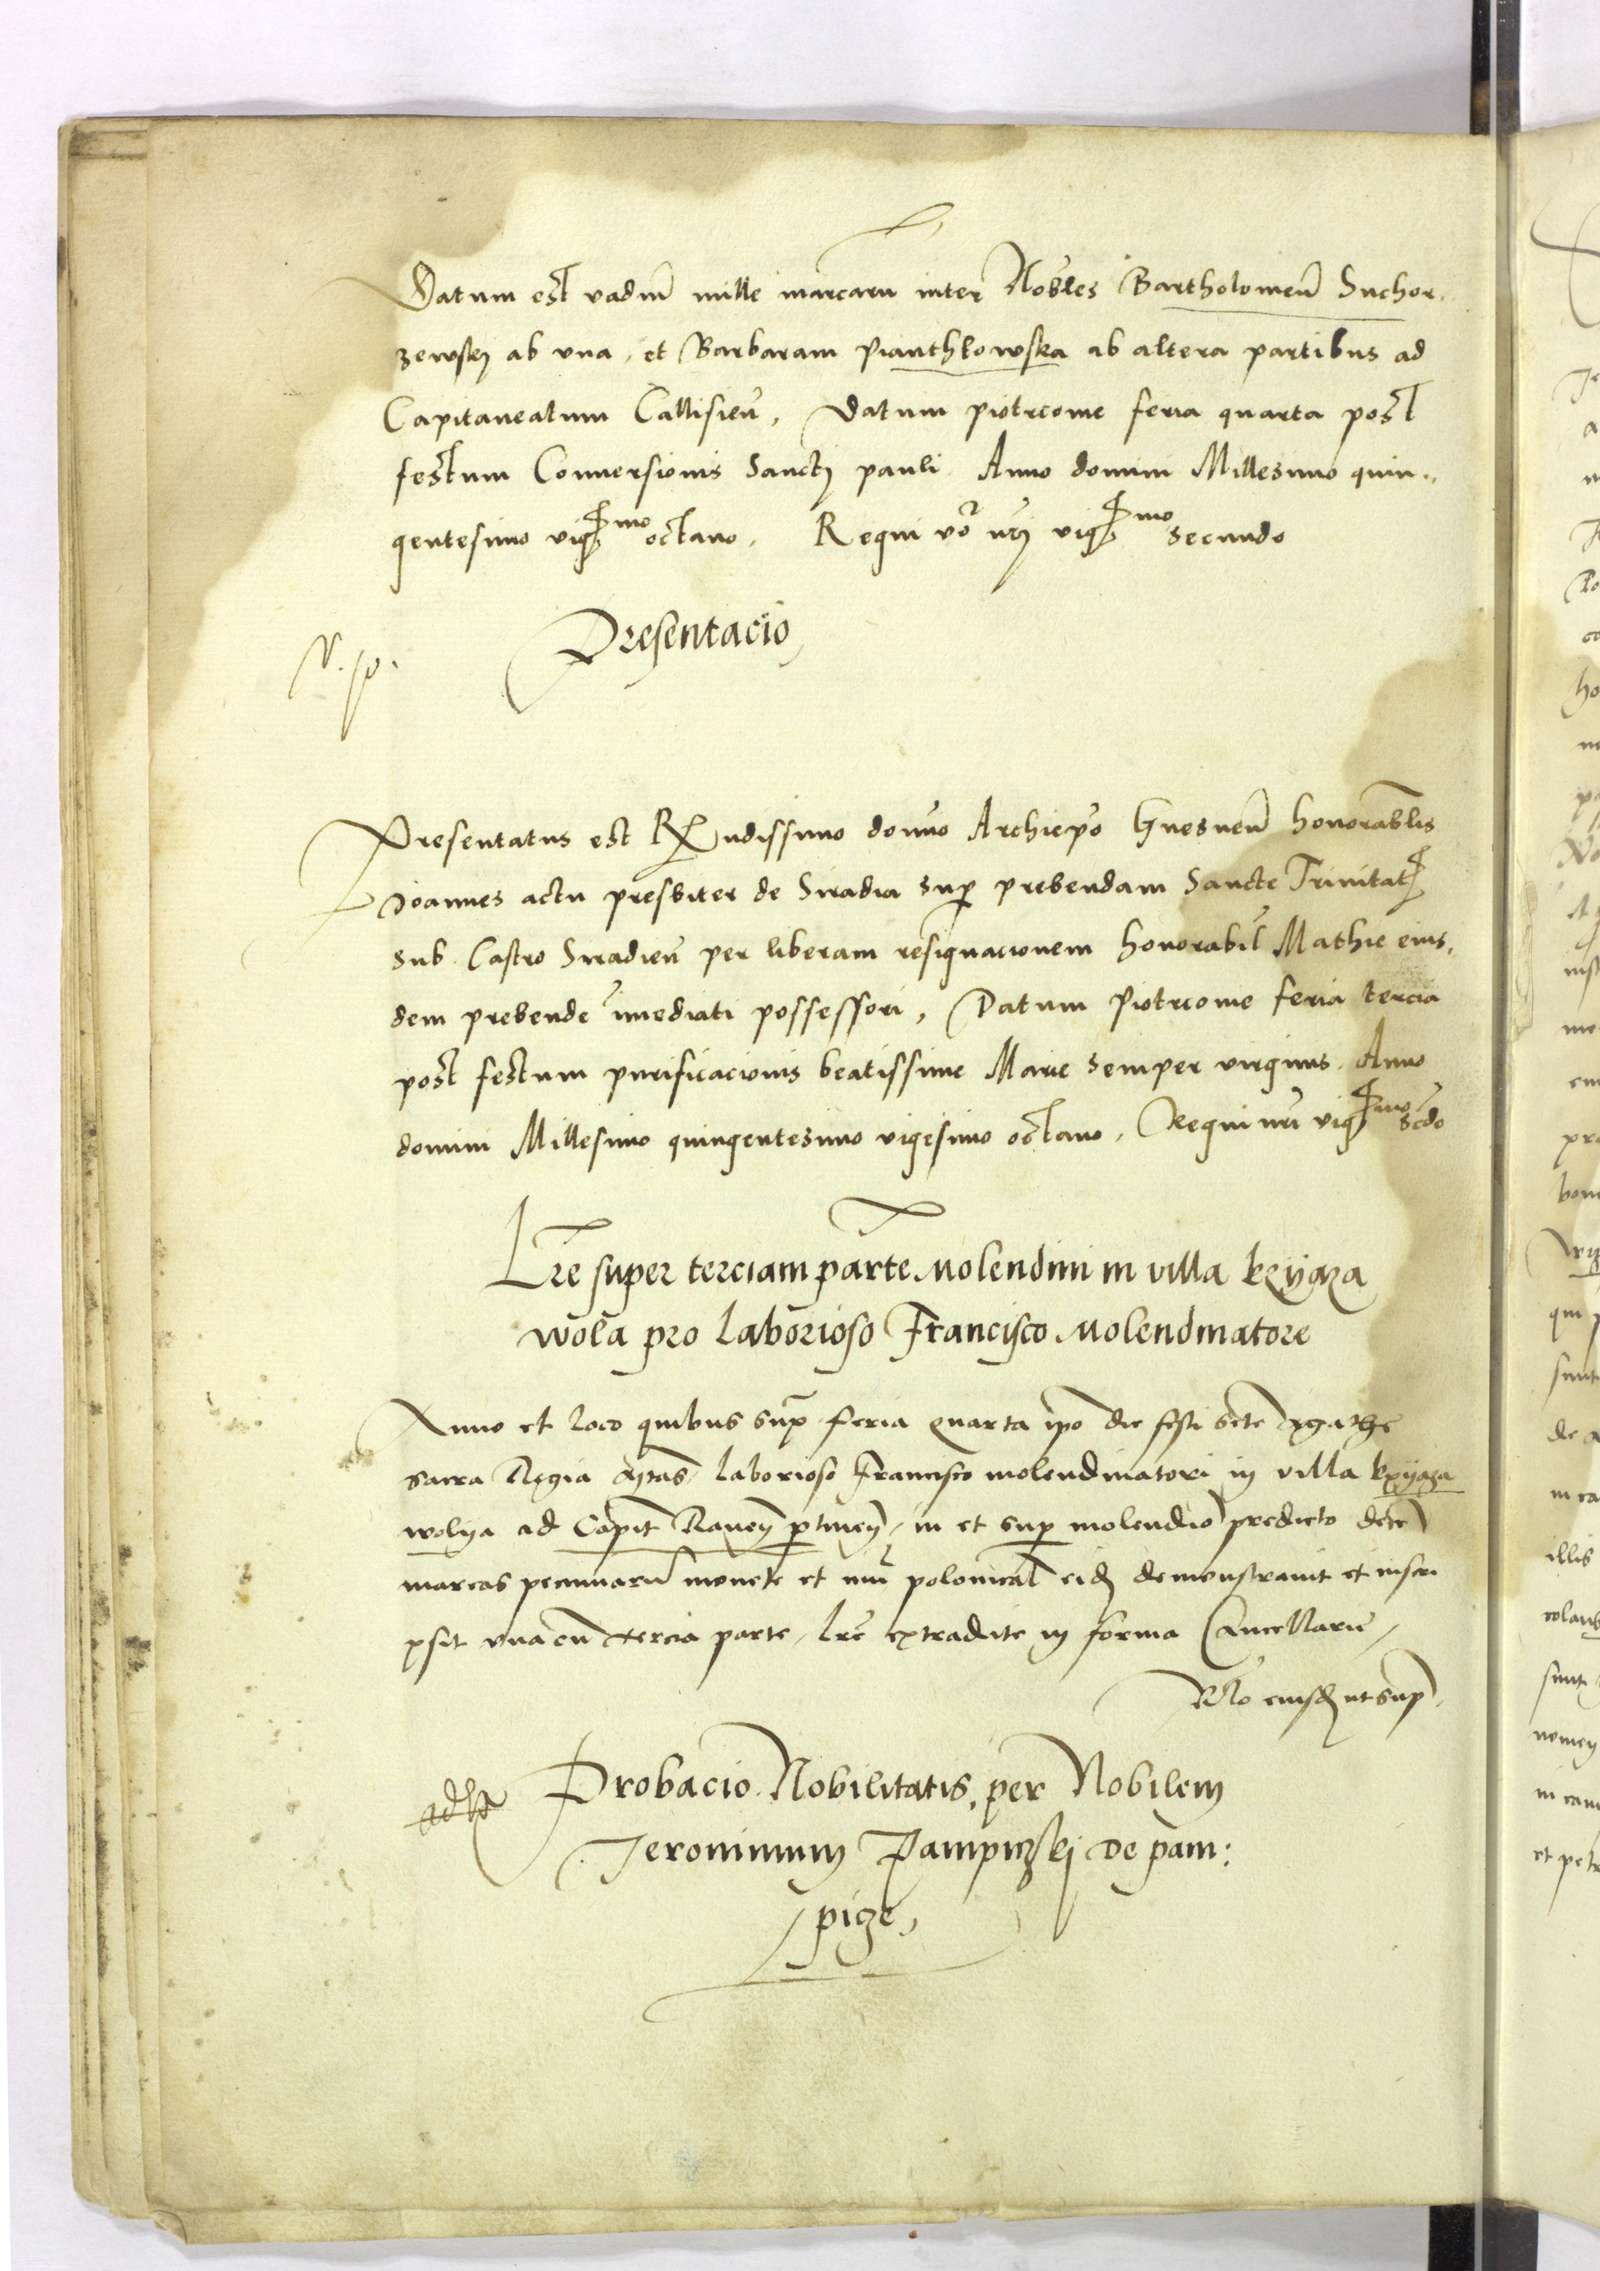 Datum est vadiu mille marcaru inter Nobles Bartholomeu Suchor
zewskÿ ab vna, et Barbaram Pianthkowska ab altera partibus ad
Capitaneatum Callisien, Datum Piotrcovie feria quarta post
festum Conversionis Sancti pauli Anno domini Millesimo quin
gentesimo vigmo octavo. Regni vo nri vigmo secundo
Presentacio
N. p.
Presentatus est Rndissimo domino Archiepo Gnesnen honorablis
Ioannes actu presbiter de Siradia sup prebendam Sancte Trinitat
sub Castro Siradien per liberam resignacionem honorabil Mathie eius
dem prebende imediati possessori, Datum Piotrcovie feria tercia
post festum purificacionis beatissime Marie semper virginis Anno
domini Millesimo quingentesimo vigesimo octavo, Regni nri vigmo scdo
Lre super terciam parte Molendini in villa kxÿaza
wola pro laborioso Francisco Molendinatore
Anno et loco quibus sup feria quarta ipo die festi scte Agathe
sacra Regia Mtas laborioso Francisco molendinatori in villa kxÿaza
wolya ad Capit Raven ptinen, in et sup molendio predicto dece
marcas pecuniaru monete et nui polonical eid demonstravit et inscri
psit vna cu tercia parte, lre extradite in forma Cancellarie,
Rlo eiusd ut sup
Probacio Nobilitatis, per Nobilem
Jeronimum Pampiczkÿ de pam:
picze,